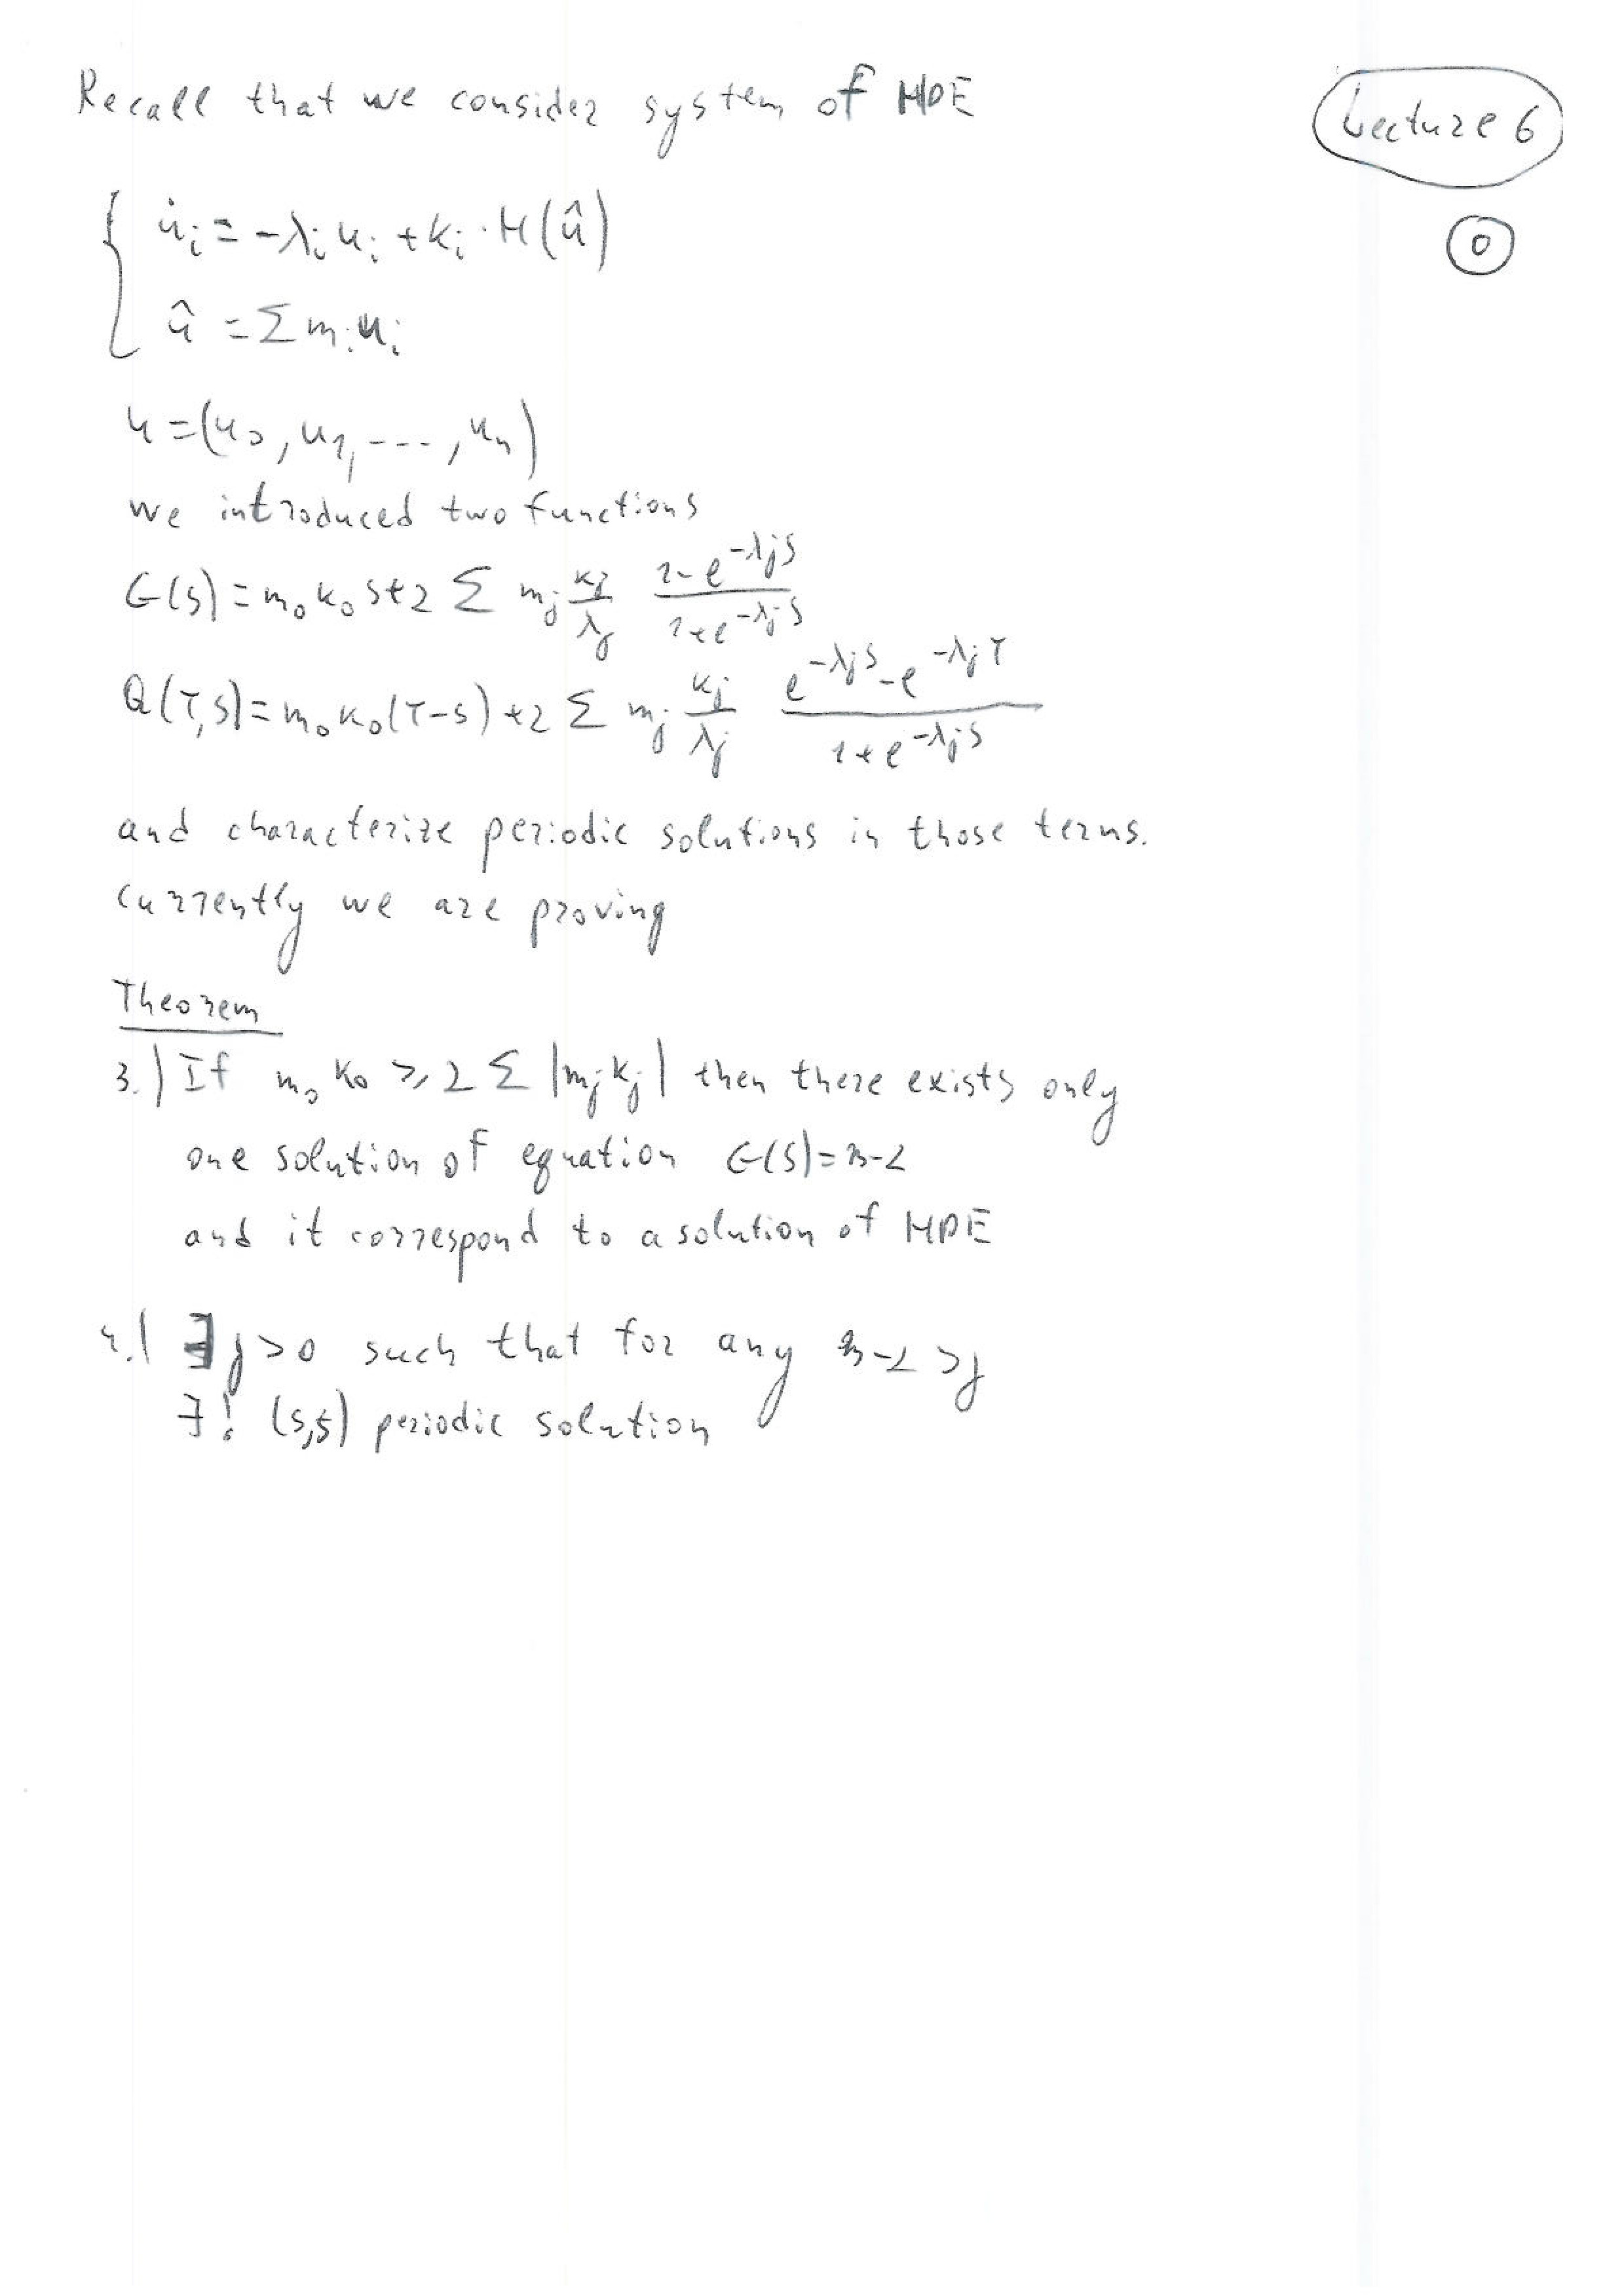 Recall that we consider system of HDE
Lecture 6
0
u̇ᵢ = -λᵢuᵢ + kᵢ·H(û)
û = Σmᵢuᵢ
u = (u₀, u₁, ---, uₙ)
we introduced two functions
G(s) = m₀k₀s + 2 Σ mⱼ kⱼ/λⱼ (1-e^{-λⱼs})/(1+e^{-λⱼs})
Q(τ,s) = m₀k₀(τ-s) + 2 Σ mⱼ kⱼ/λⱼ (e^{-λⱼs} - e^{-λⱼτ})/(1+e^{-λⱼs})
and characterize periodic solutions in those terms.
Currently we are proving
Theorem
3.) If m₀k₀ ≥ 2 Σ |mⱼkⱼ| then there exists only
one solution of equation G(s) = β-α
and it correspond to a solution of HDE
4.) ∃ j>0 such that for any β-α > j
∃! (s,s) periodic solution